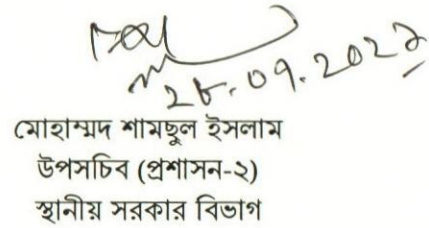 ২৮.০৭.২০২২
মোহাম্মদ শামছুল ইসলাম
উপসচিব (প্রশাসন-২)
স্থানীয় সরকার বিভাগ